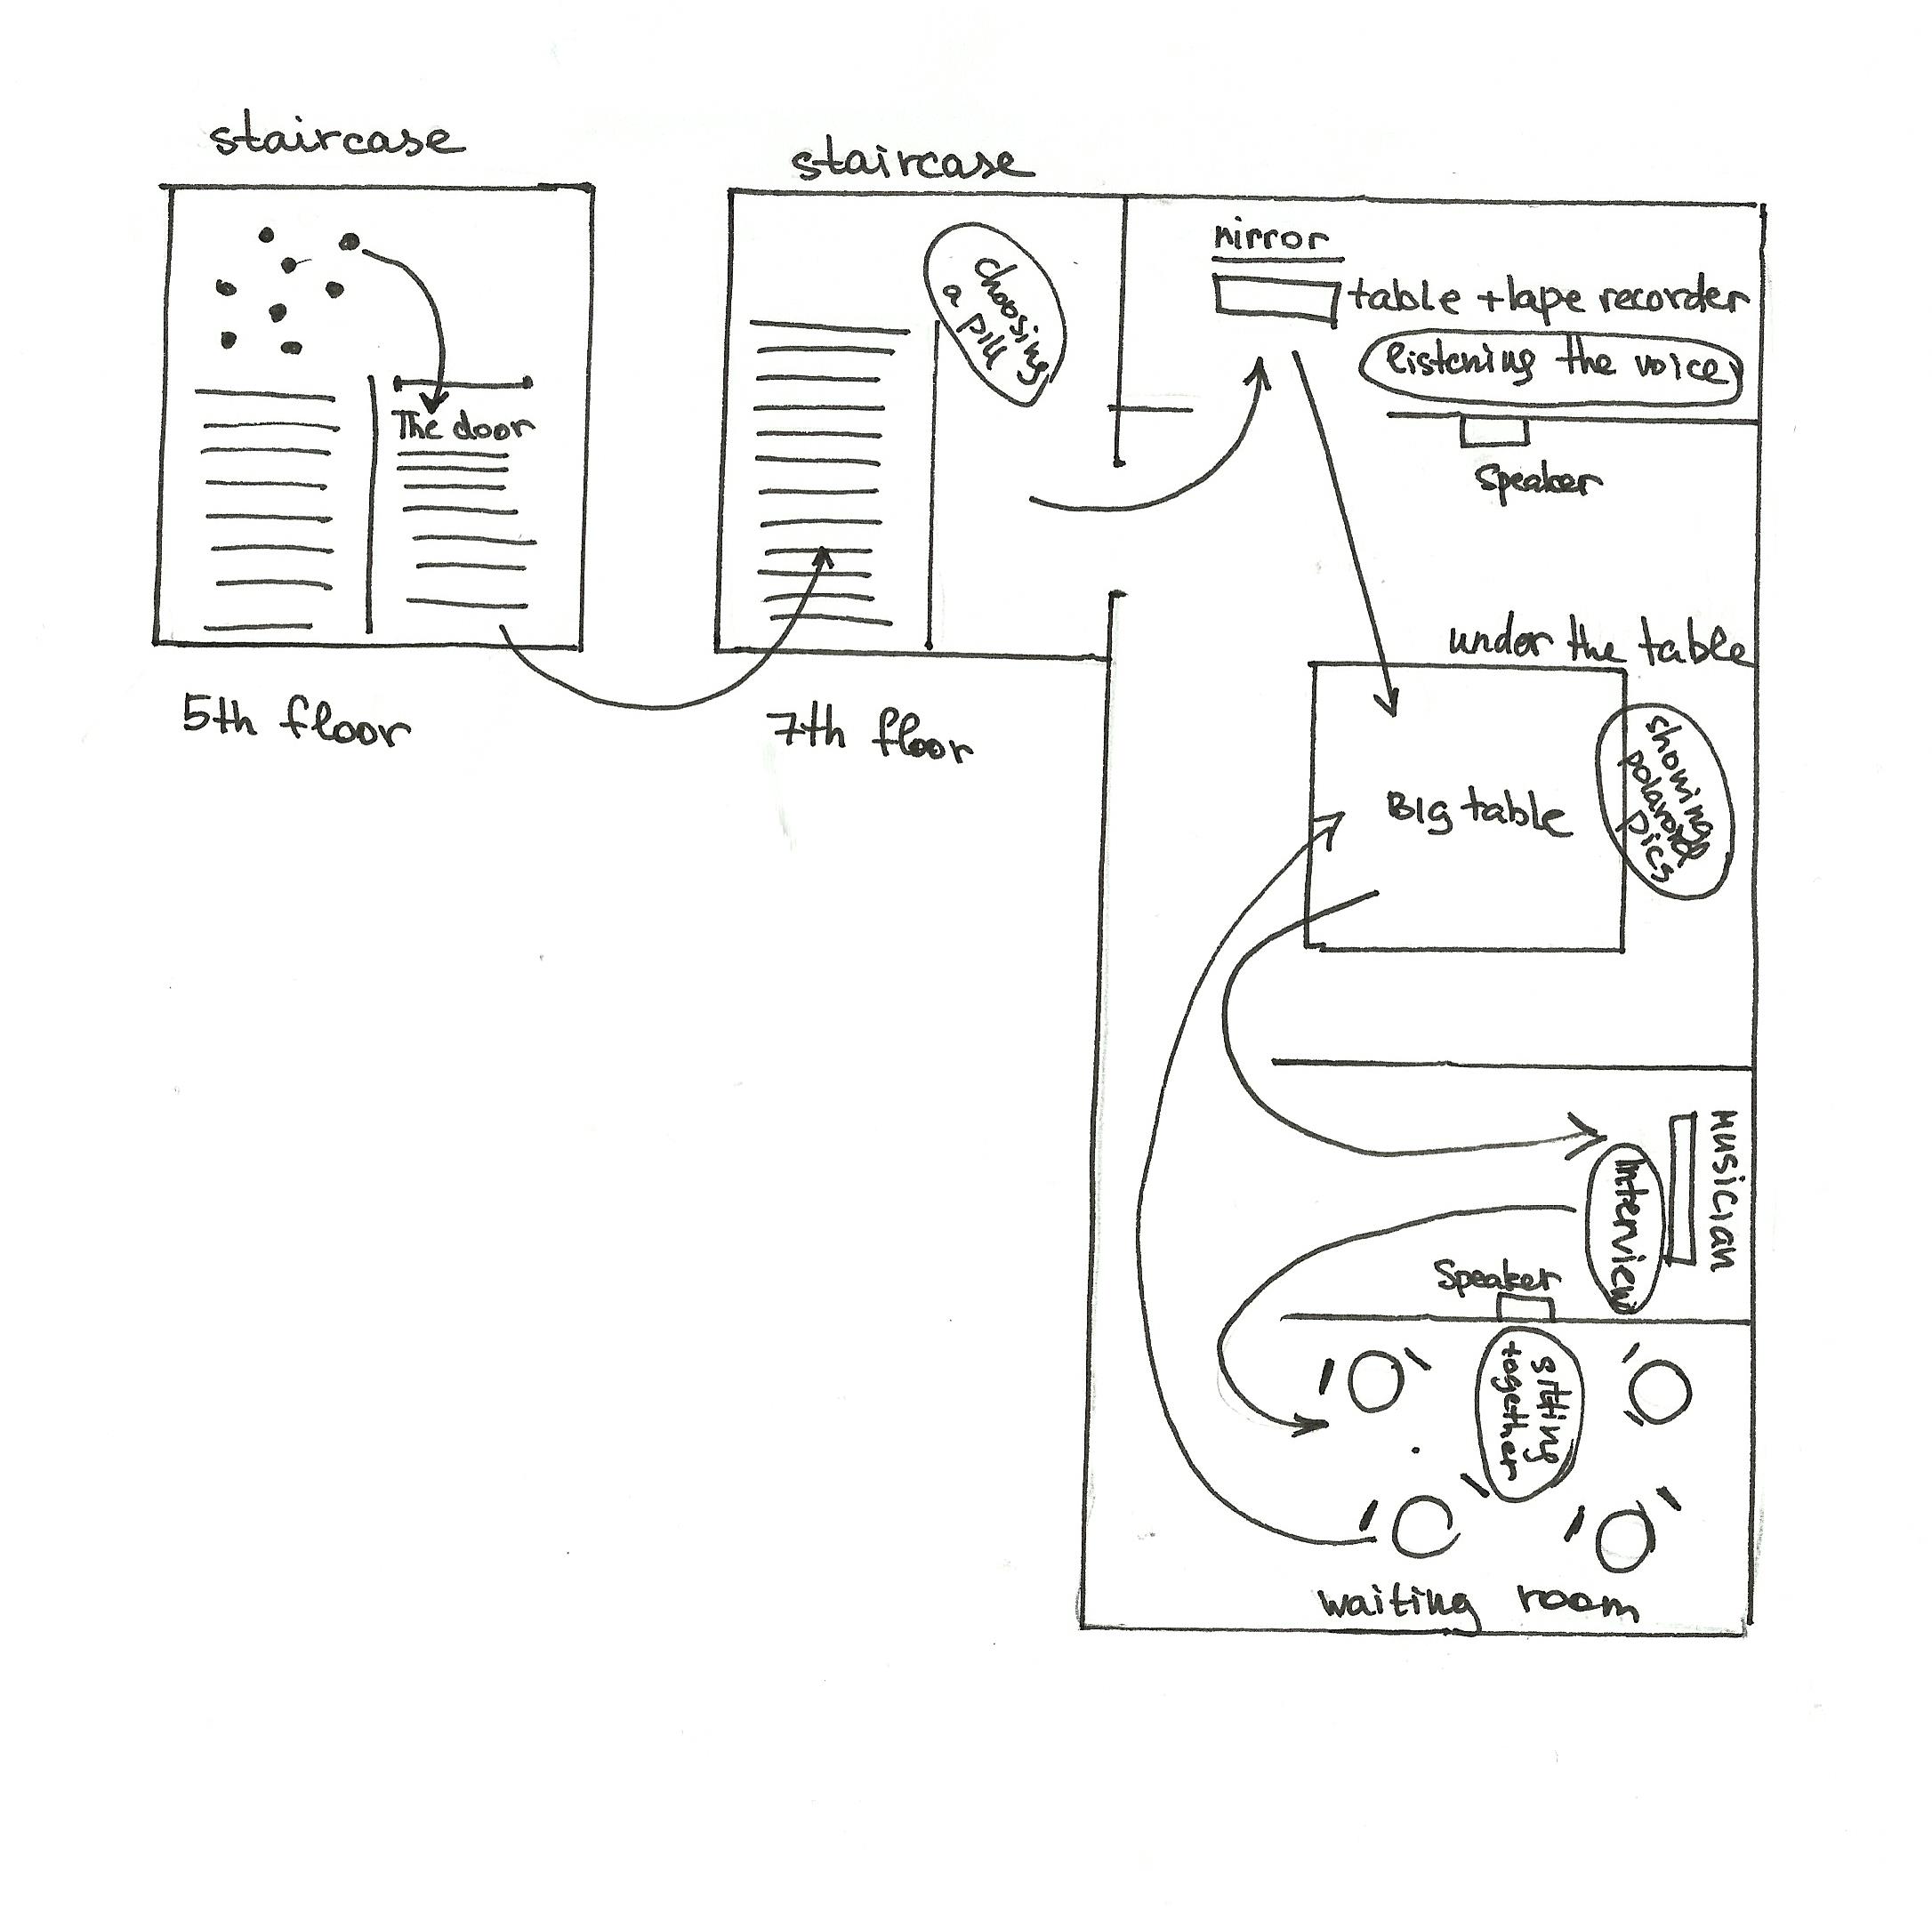 staircase
staircase
The door
5th floor
7th floor
choosing
a pill
mirror
table + tape recorder
listening the voice
speaker
under the table
Big table
showing
polaroid
pics
Musician
Interview
Speaker
sitting
together
waiting room